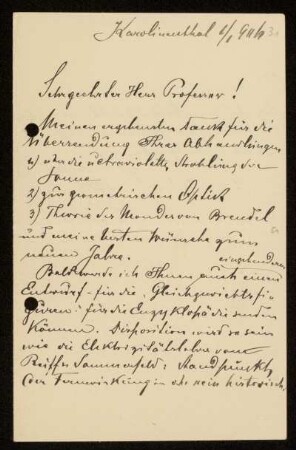 Karolinenthal 6/1 904
Sehrgeehrter Herr Professor!
Meinen ergebensten Dank für die
Übersendung Ihrer Abhandlungen
1) über die ultraviolette Strahlung der
Sonne
2) zur geometrischen Optik
3) Theorie des Mondes von Brendel
und meine besten Wünsche zum
neuen Jahre.
Bald werde ich Ihnen auch einen eingehenderen
Entwurf für die "Gleichgewichtsfi-
guren" für die Encyklopädie senden
können. Disposition wird so sein
wie die Elektrizitätslehre von
Reiff Sommerfeld: Standpunkt
der Fernwirkung: also rein historisch,